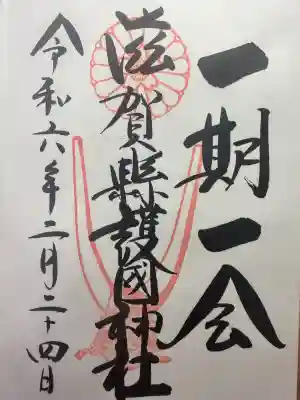 一期一会
滋賀縣護國神社
令和六年二月二十四日